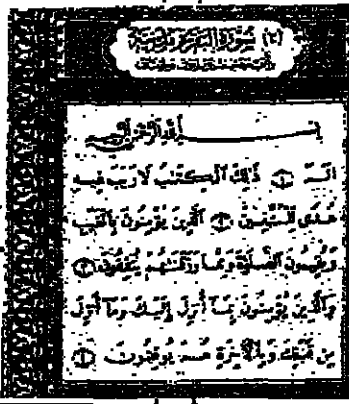 (٢) سُورَةُ البَقَرَةِ مَدَنِيَّة
بِسْمِ اللَّهِ الرَّحْمَٰنِ الرَّحِيمِ
الٓمٓ ۝١ ذَٰلِكَ ٱلْكِتَٰبُ لَا رَيْبَ فِيهِ
هُدًى لِّلْمُتَّقِينَ ۝٢ ٱلَّذِينَ يُؤْمِنُونَ بِٱلْغَيْبِ
وَيُقِيمُونَ ٱلصَّلَوٰةَ وَمِمَّا رَزَقْنَٰهُمْ يُنفِقُونَ ۝٣
وَٱلَّذِينَ يُؤْمِنُونَ بِمَآ أُنزِلَ إِلَيْكَ وَمَآ أُنزِلَ
مِن قَبْلِكَ وَبِٱلْءَاخِرَةِ هُمْ يُوقِنُونَ ۝٤